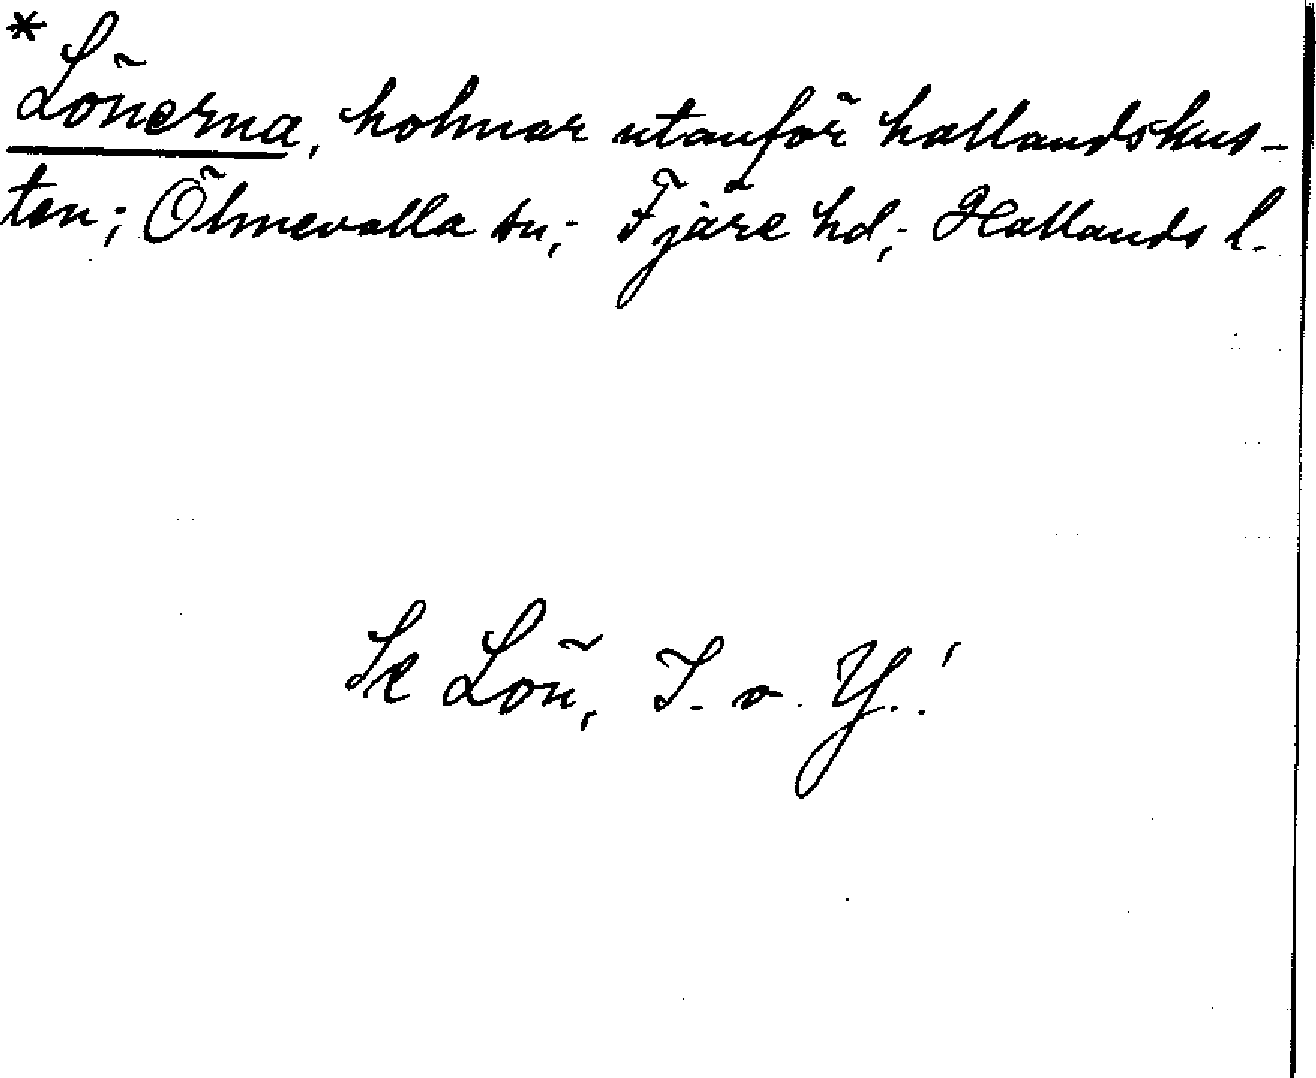 * Lönerna, holmar utanför hallandskus-
ten; Ölmevalla sn; Fjäre hd; Hallands l.
Se Lön, I. o. Y.!